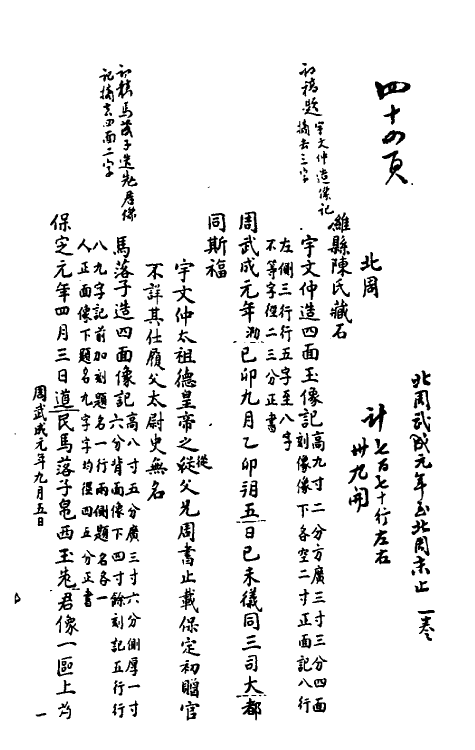 北周武成元年至北周末止 一卷
計七百七十行左右
卅九開
四十四頁
北周
濰縣陳氏藏石
初稿題宇文仲造像記
摘去三字
宇文仲造四面玉像記高九寸二分方廣三寸三分四面
刻像像下各空二寸正面記八行
左側三行行五字至八字
不等字徑二三分正書
周武成元年歲己卯九月乙卯朔五日己未儀同三司大都
同斯福
宇文仲太祖德皇帝之從父兄周書止載保定初贈官
從
不詳其仕履父太尉史無名
初稿馬落子造老君像
記摘去四面二字
馬落子造四面像記高八寸五分廣三寸六分側厚一寸
六分背面像下四寸餘刻記五行行
八九字記前加刻題名一行兩側題名各一
人正面像下題名九字字均徑四五分正書
保定元年四月三日道民馬落子爲西王老君像一區上为
周武成元年九月五日
一